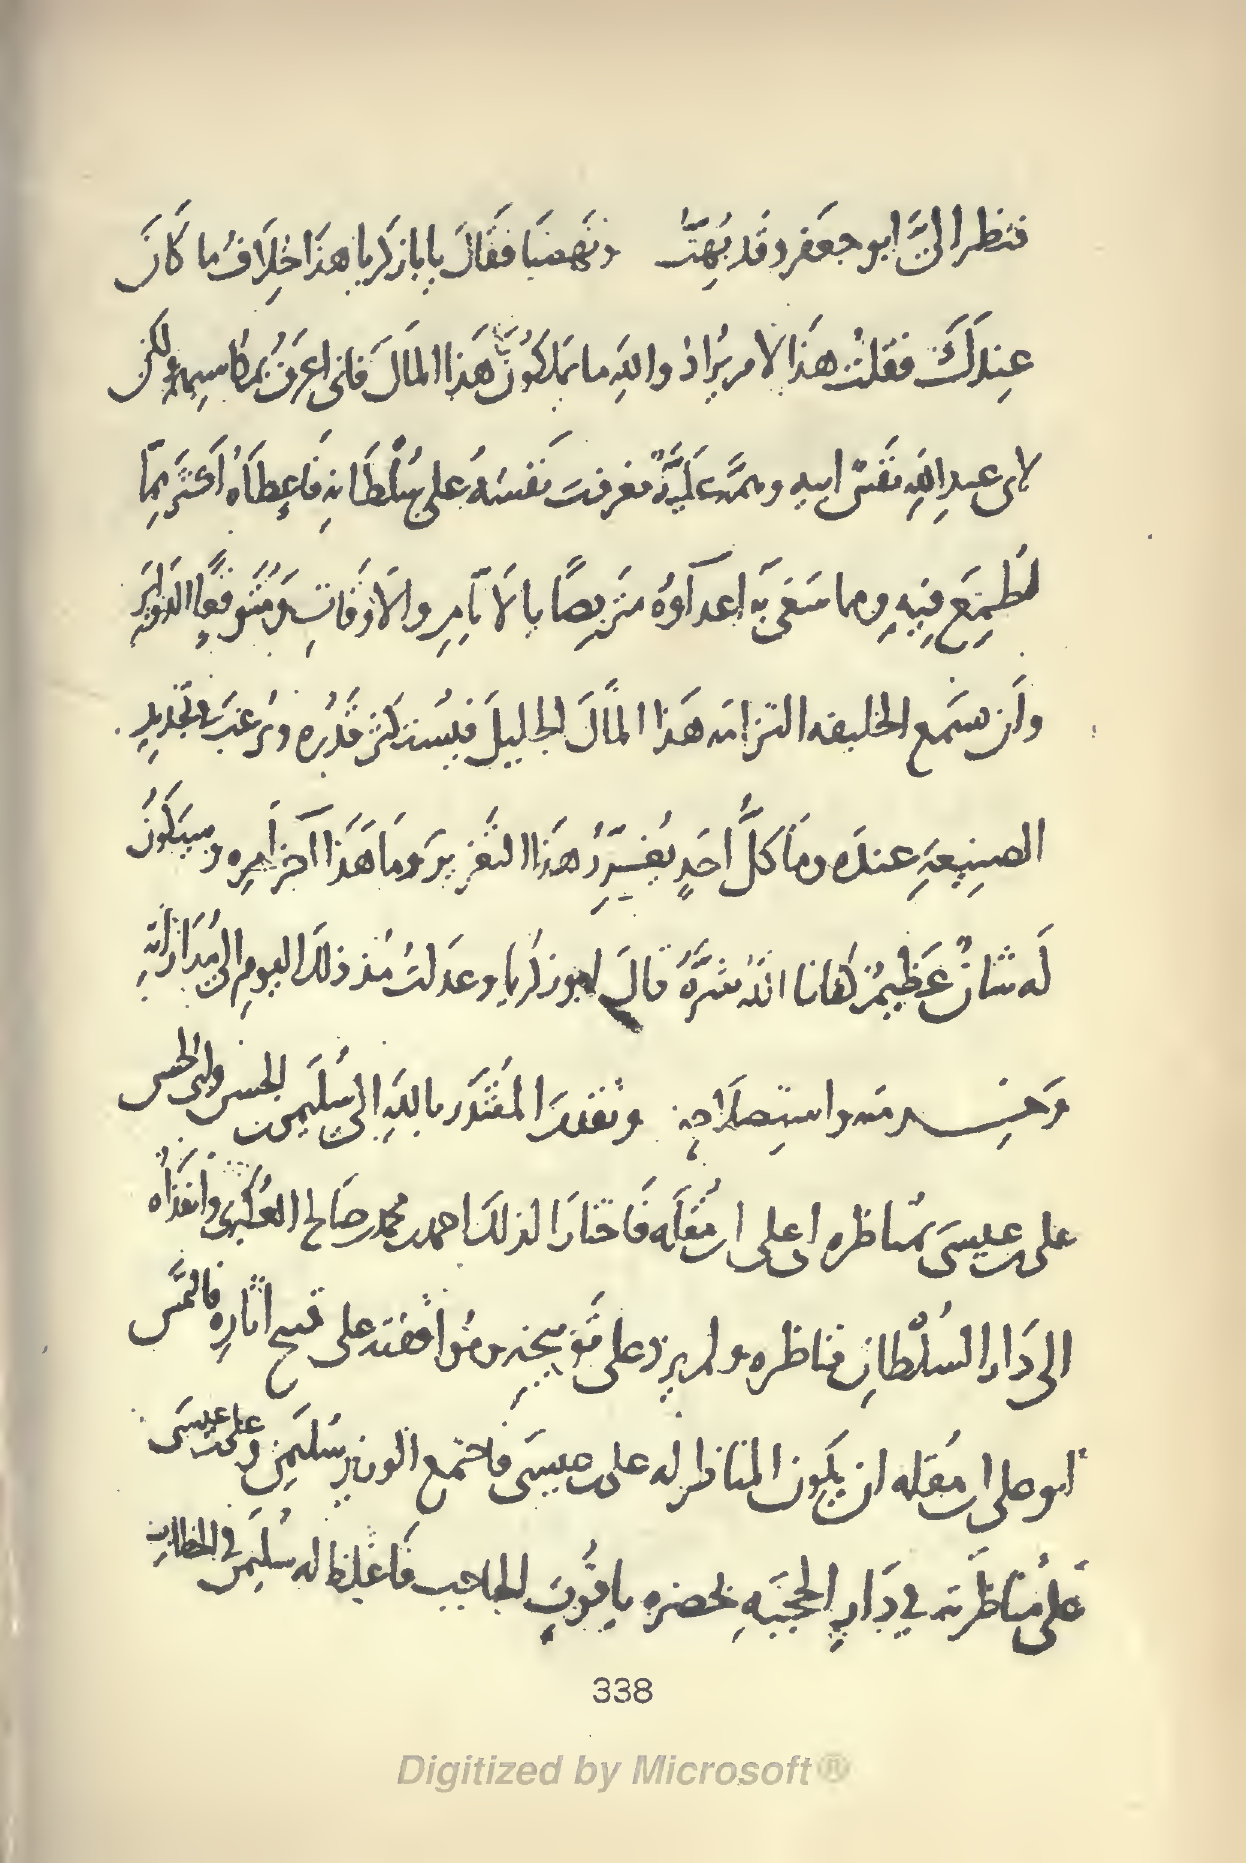 فنظر الىَّ ابو جعفر وقد بُهِتُّ ونَهضنَا فقَالَ يابا زكريا هذَا خِلَافُ ما كَانَ
عِندَكَ فقلتُ هذَا الامر يُرَادُ والله ما تملكون هَذا المَالَ فانى اعرفُ بمكاسبه ولكن
لابى عبدِ اللهِ نَفسٌ ابيه وهمَّه عَليَّةٌ فعرفت نَفسُهُ على سُلطَانِهِ فاعطَاهُ أكثَر مِمَّا
طُمِعَ فِيهِ ومما سَعَى بِهِ اعدآؤهُ متَربصًا بالايَّامِ والاوقَاتِ ومُتَوقعًا الدَوايرَ
وأن سمَع الخليفه التزامَه هَذا المَالَ الجليلَ فيَستكثر قَدرُه ويَرغبَ فى تجديد
الصنِيعةِ عندَه ومَا كلُّ احَدٍ يُغرِّرُ هَذا التغريرَ ومَا هَذا آخر امرِه وسيَكونُ
لَه شَانٌ عَظيمٌ كفانا اللهُ شرَّهُ قالَ ابو زكريا وعدَلتُ مُنذ ذلكَ اليومِ الى مُدَارَاتهِ
وخدمته واستِصلَاحِهِ وتقدمَ المُقتَدر باللهِ الى سُليمن بن الحسن والى الحسن
على بن عيسَى بمُناظره ابى على ابن مُقلَه فَاختَارَا لذلكَ احمد بن محمد بن صَالح العُكبرى وانفذَاه
الى دَار السُلطانِ فناظره ولم يزد على تَوبيخِه ومُواقفته على قبيح اثَارِه فالتمَس
ابو على ابن مُقله ان يكون المناظر له على بن عيسَى فاجتمع الون بن سُليمن وعلى بن عيسَى
عَلى مُناظَرته في دَارِ الحجبَهِ بحضره ياقُوتٍ الحاجب فَاغلظ له سُليمن في الخطاب
338
Digitized by Microsoft®